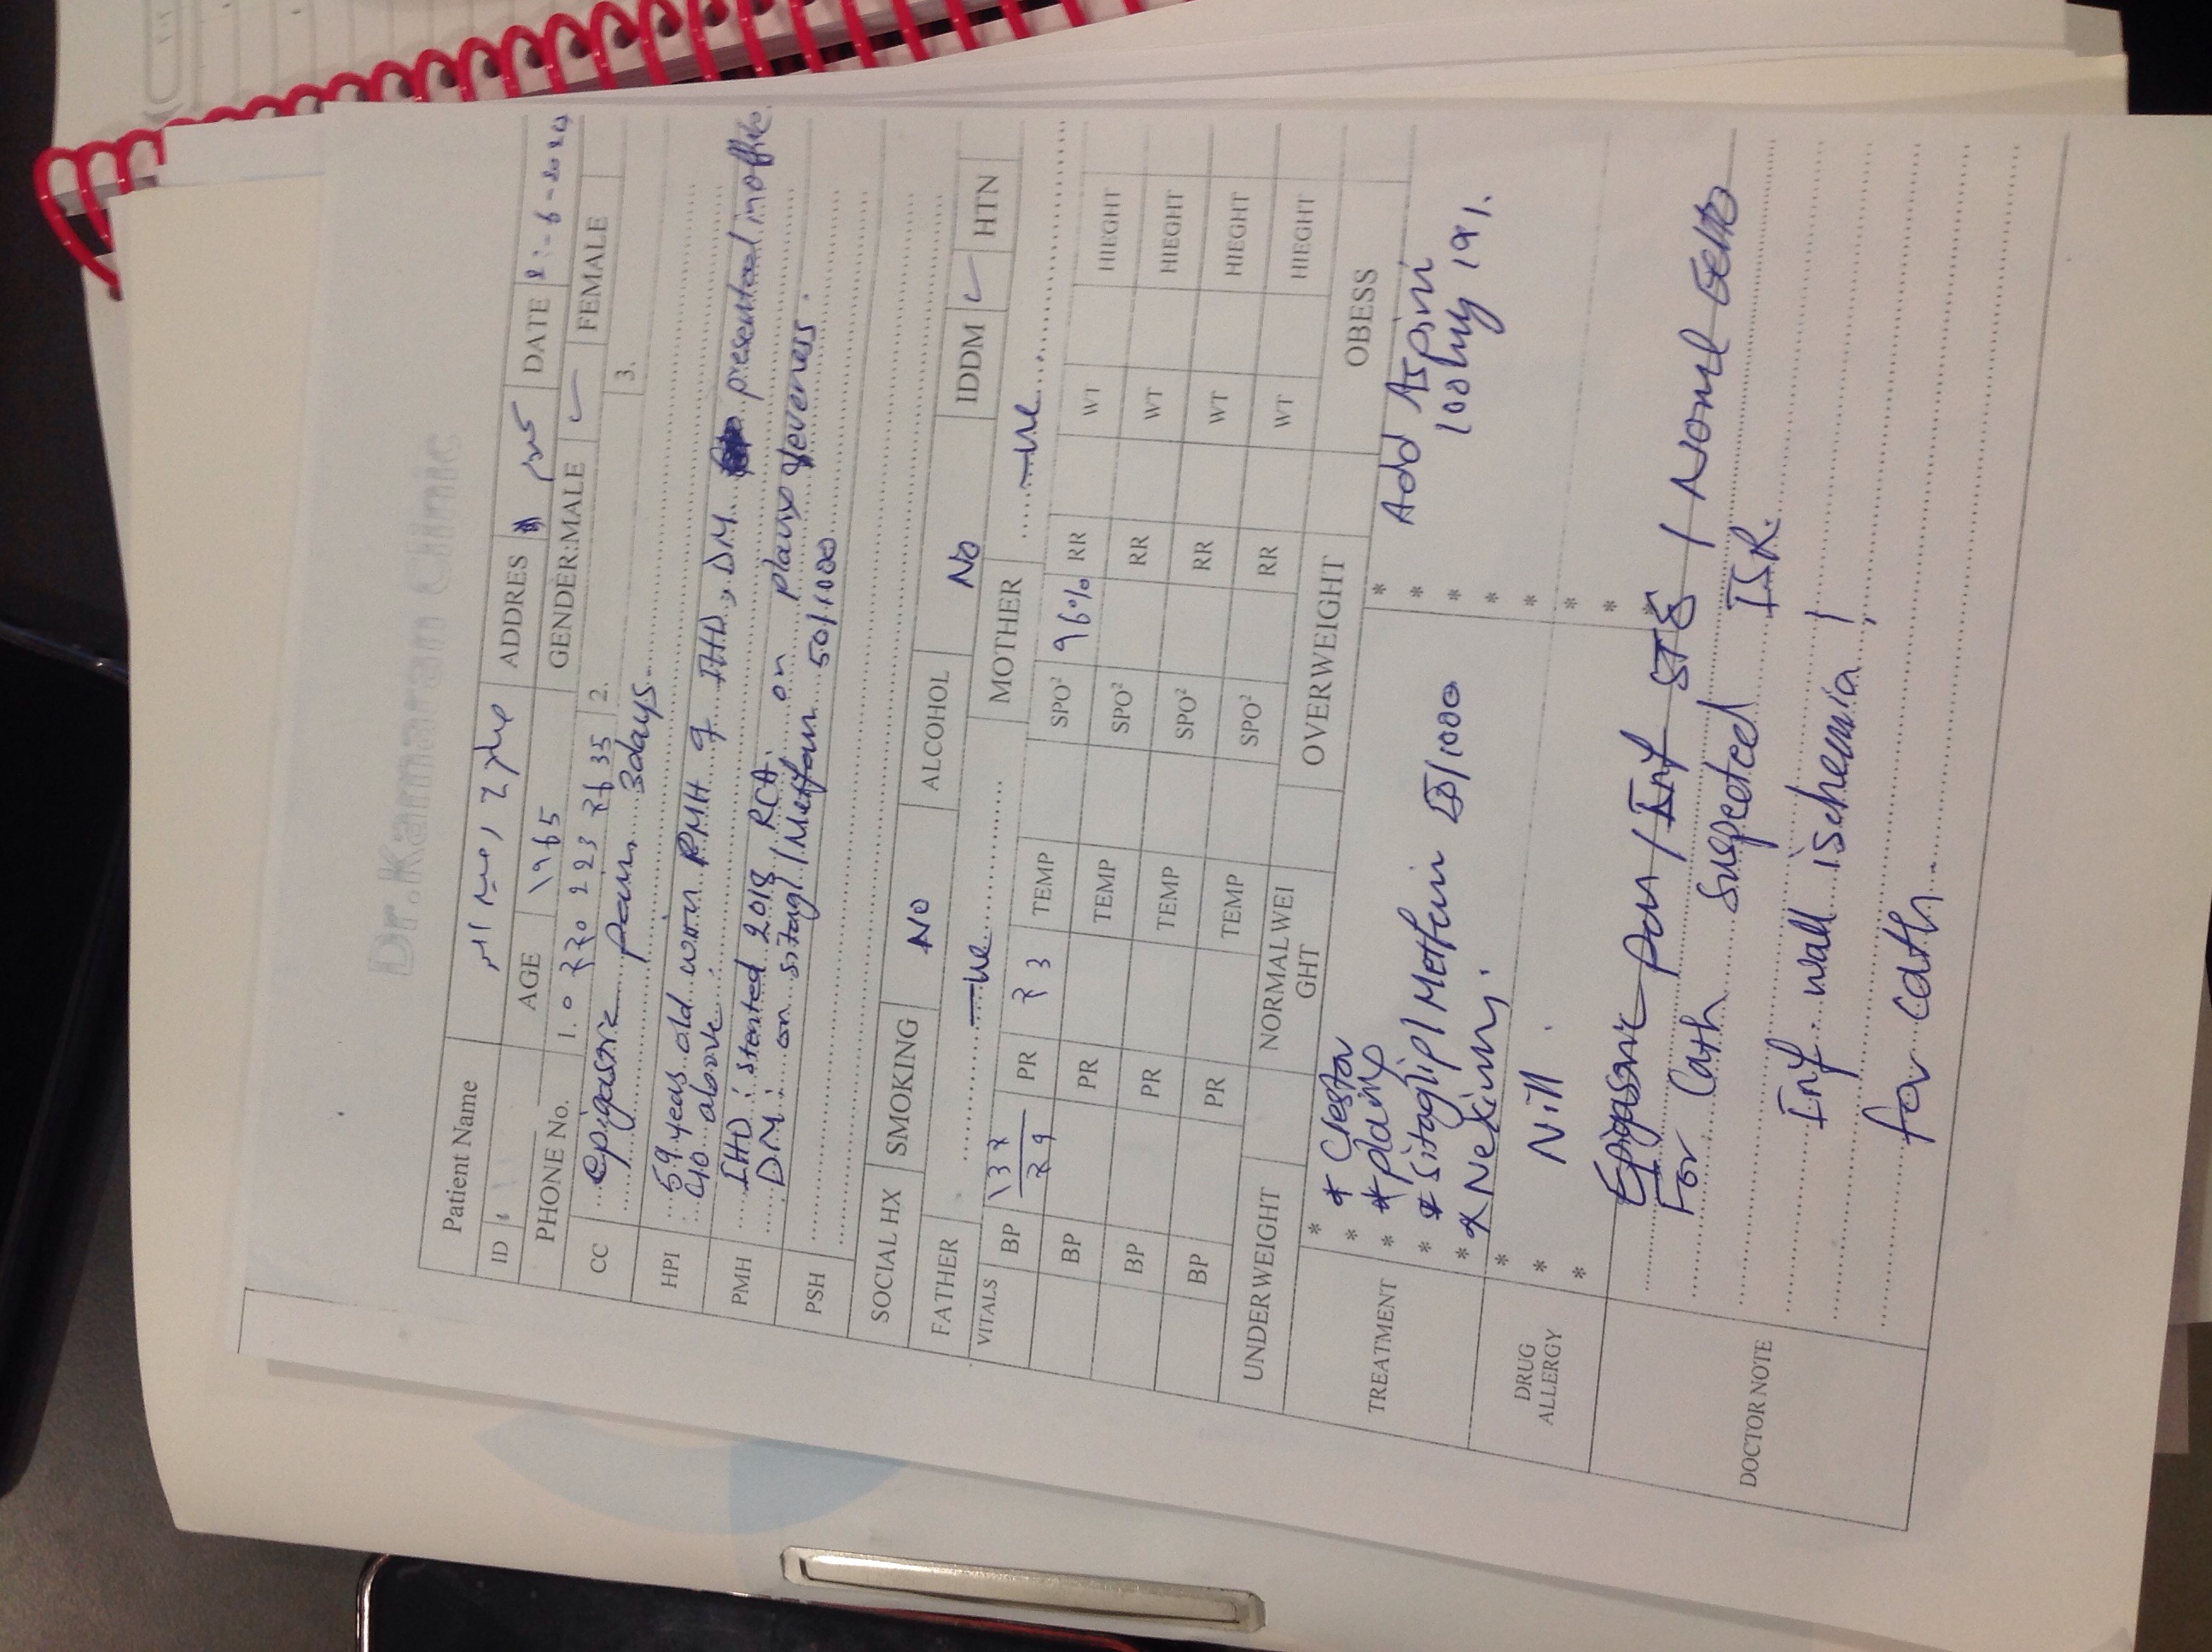 Dr.Kamaran Clinic
Patient Name
ID ADDRES DATE 2-6-2024
AGE 1965 GENDER:MALE ✓ FEMALE
PHONE No. 1.0770 223 7635 2. 3.
CC epigastric pain 3days
HPI 59 years old with PMH of IHD, DM presented in office
C/O above
PMH IHD: started 2018 RCA on plavix
DM: on sitagl/Metform 50/1000
PSH
SOCIAL HX SMOKING No ALCOHOL No IDDM ✓ HTN
FATHER -ve MOTHER -ve
VITALS BP 137/79 PR 73 TEMP SPO² 96% RR WT HIEGHT
BP PR TEMP SPO² RR WT HIEGHT
BP PR TEMP SPO² RR WT HIEGHT
BP PR TEMP SPO² RR WT HIEGHT
UNDERWEIGHT NORMALWEI
GHT OVERWEIGHT OBESS
TREATMENT
* Crestor
* plavix
* sitaglip/Metformin 50/1000
* Nexium
* Add Aspirin
100mg 1x1
DRUG
ALLERGY
Nill
DOCTOR NOTE
Epigastric pain / Inf ST / Normal Echo
For Cath suspected ISR.
Inf wall ischemia !
for cath